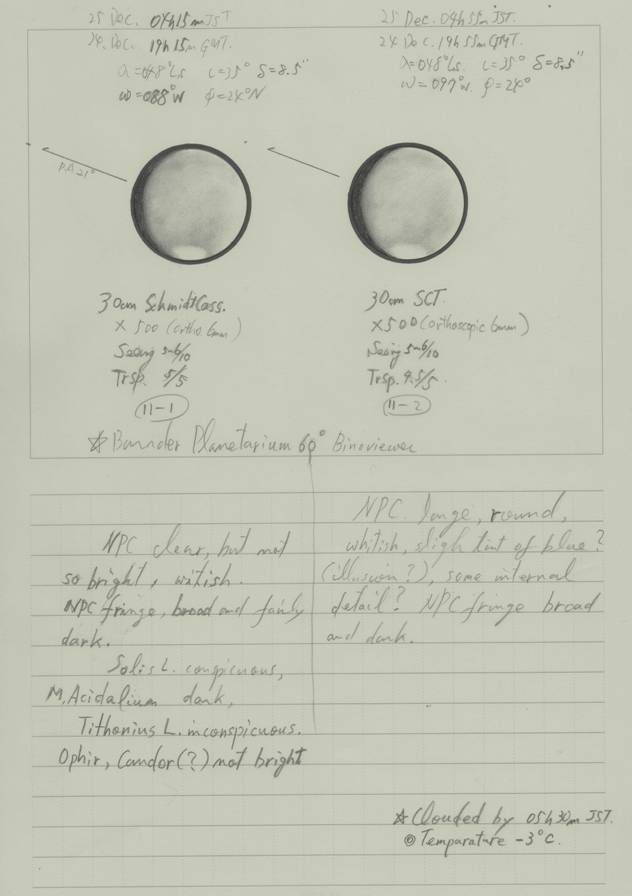 25 Dec. 04h15m JST
24 Dec. 19h15m GMT.
λ=048°Ls ι=35° δ=8.5"
ω=088°W φ=24°N
25 Dec. 04h55m JST.
24 Dec. 19h55m GMT.
λ=048°Ls. ι=35° δ=8.5"
ω=097°W. φ=24°
P.A 21°
30cm SchmidtCass.
×500 (ortho 6mm)
Seeing 5-6/10
Trsp. 5/5
11-1
30cm SCT.
×500 (orthoscopic 6mm)
Seeing 5-6/10
Trsp. 4.5/5.
11-2
☆ Baader Planetarium 60° Binoviewer
NPC clear, but not
so bright, witish.
NPC fringe, broad and fairly
dark.
Solis L. conspicuous,
M. Acidalium dark,
Tithonius L. inconspicuous.
Ophir, Candor(?) not bright
NPC. large, round,
whitish, sligh tint of blue?
(illusion?), some internal
detail? NPC fringe broad
and dark.
☆ Clouded by 05h30m JST.
◎ Temparature -3°C.